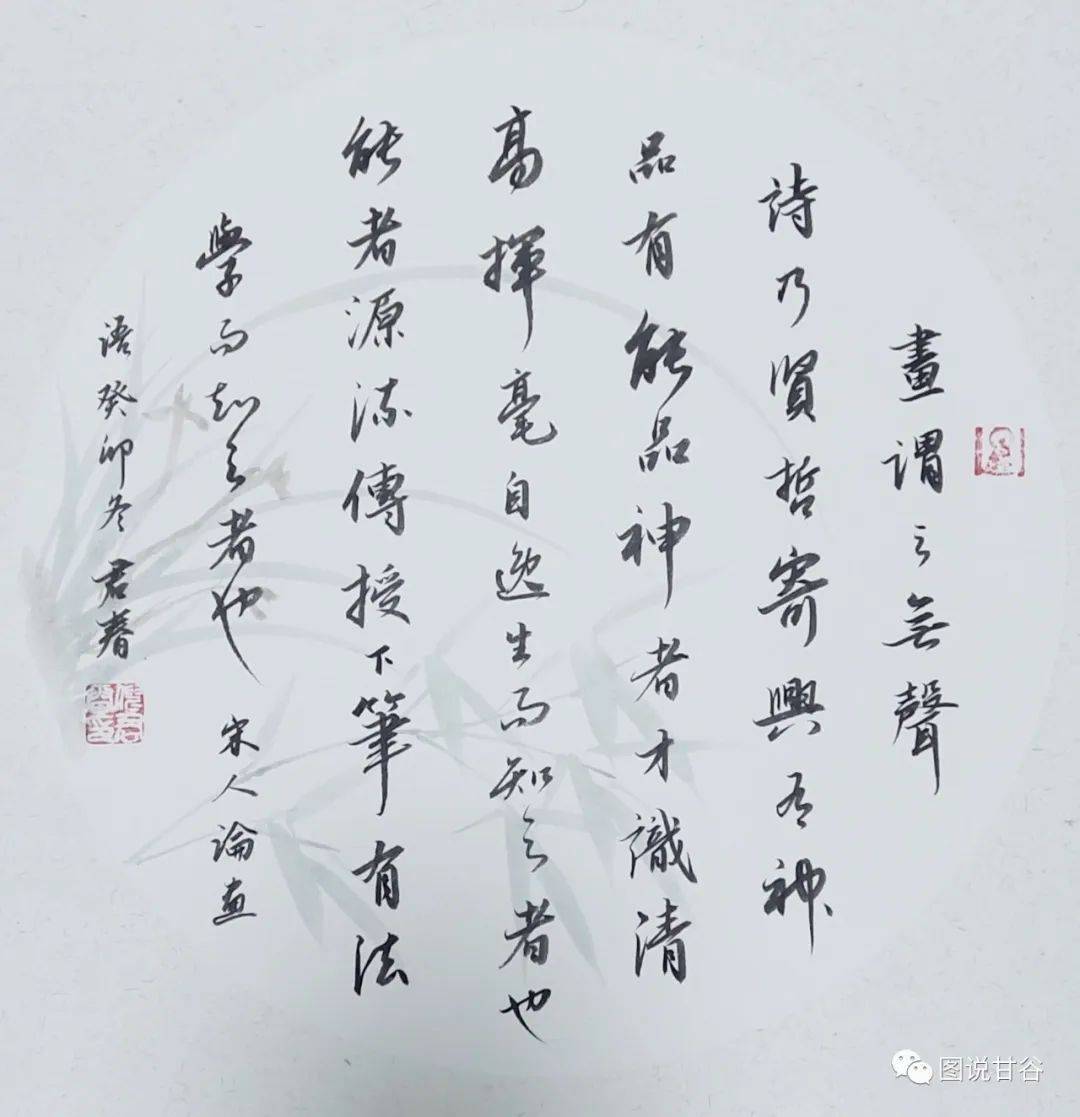 畫謂之無聲
詩乃賢哲寄興有神
品有能品神者才識清
高揮毫自逸生而知之者也
能者源流傳授下筆有法
學而知之者也 宋人論畫
語癸卯冬君春
图说甘谷